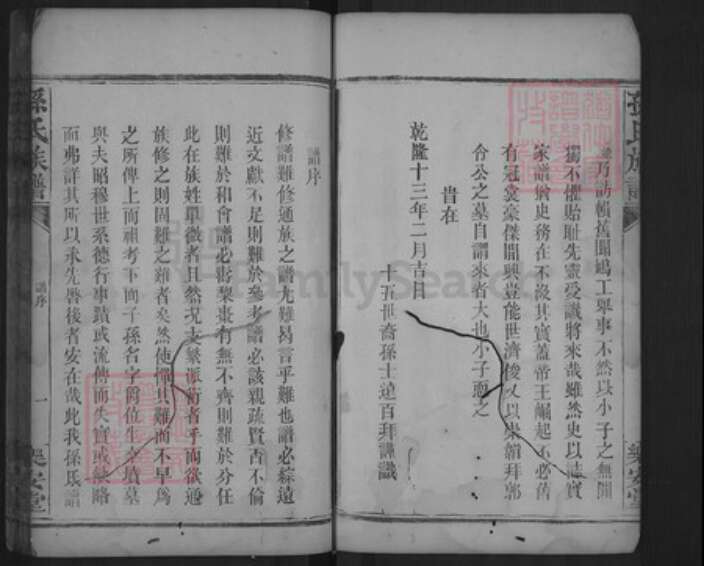 乃訪賴舊聞鳩工舉事不然以小子之無聞
獨不懼貽恥先靈受譏將來哉雖然史以誌實
家譜猶史務在不沒其實蓋帝王崛起不必舊
有冠裳豪傑開興豈能世濟俊乂以崇韜拜郭
令公之墓自謂來者大也小子恧之
旹在
乾隆十三年二月吉日
十五世裔孫士遠百拜謹識
孫氏族譜
樂安堂
譜序
修譜難修通族之譜尤難曷言乎難也譜必綜遠
近文獻不足則難於參考譜必該親疏賢否不倫
則難於和會譜必壽棗有無不齊則難於分任
此在族姓單微者且然況支繁派衍者乎而欲通
族修之則固難之難者矣然使憚其難而不早爲
之所俾上而祖考下而子孫名字爵位生卒墳墓
與夫昭穆世系德行事蹟或流傳而失實或缺略
而弗詳其所以承先啓後者安在哉此我孫氏譜
孫氏族譜
譜序
一
樂安堂
FamilySearch